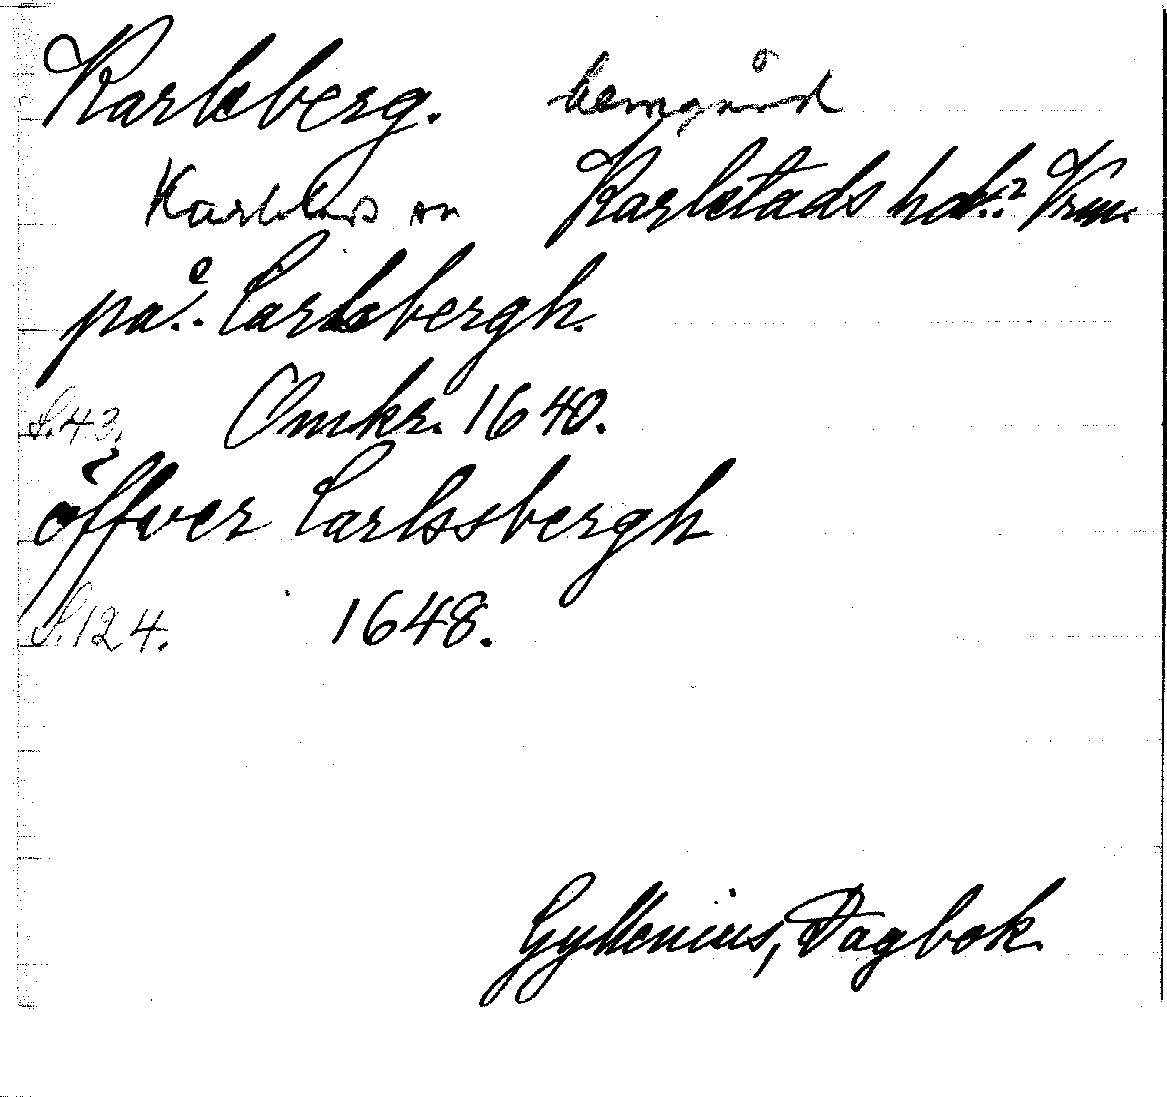 Karlsberg. herrgård
Karlstads sn Karlstads hd.? Vrm.
på Carlsbergh.
S. 43. Omkr. 1640.
öffver Carlssbergh
S. 124. 1648.
Gyllenius, Dagbok.